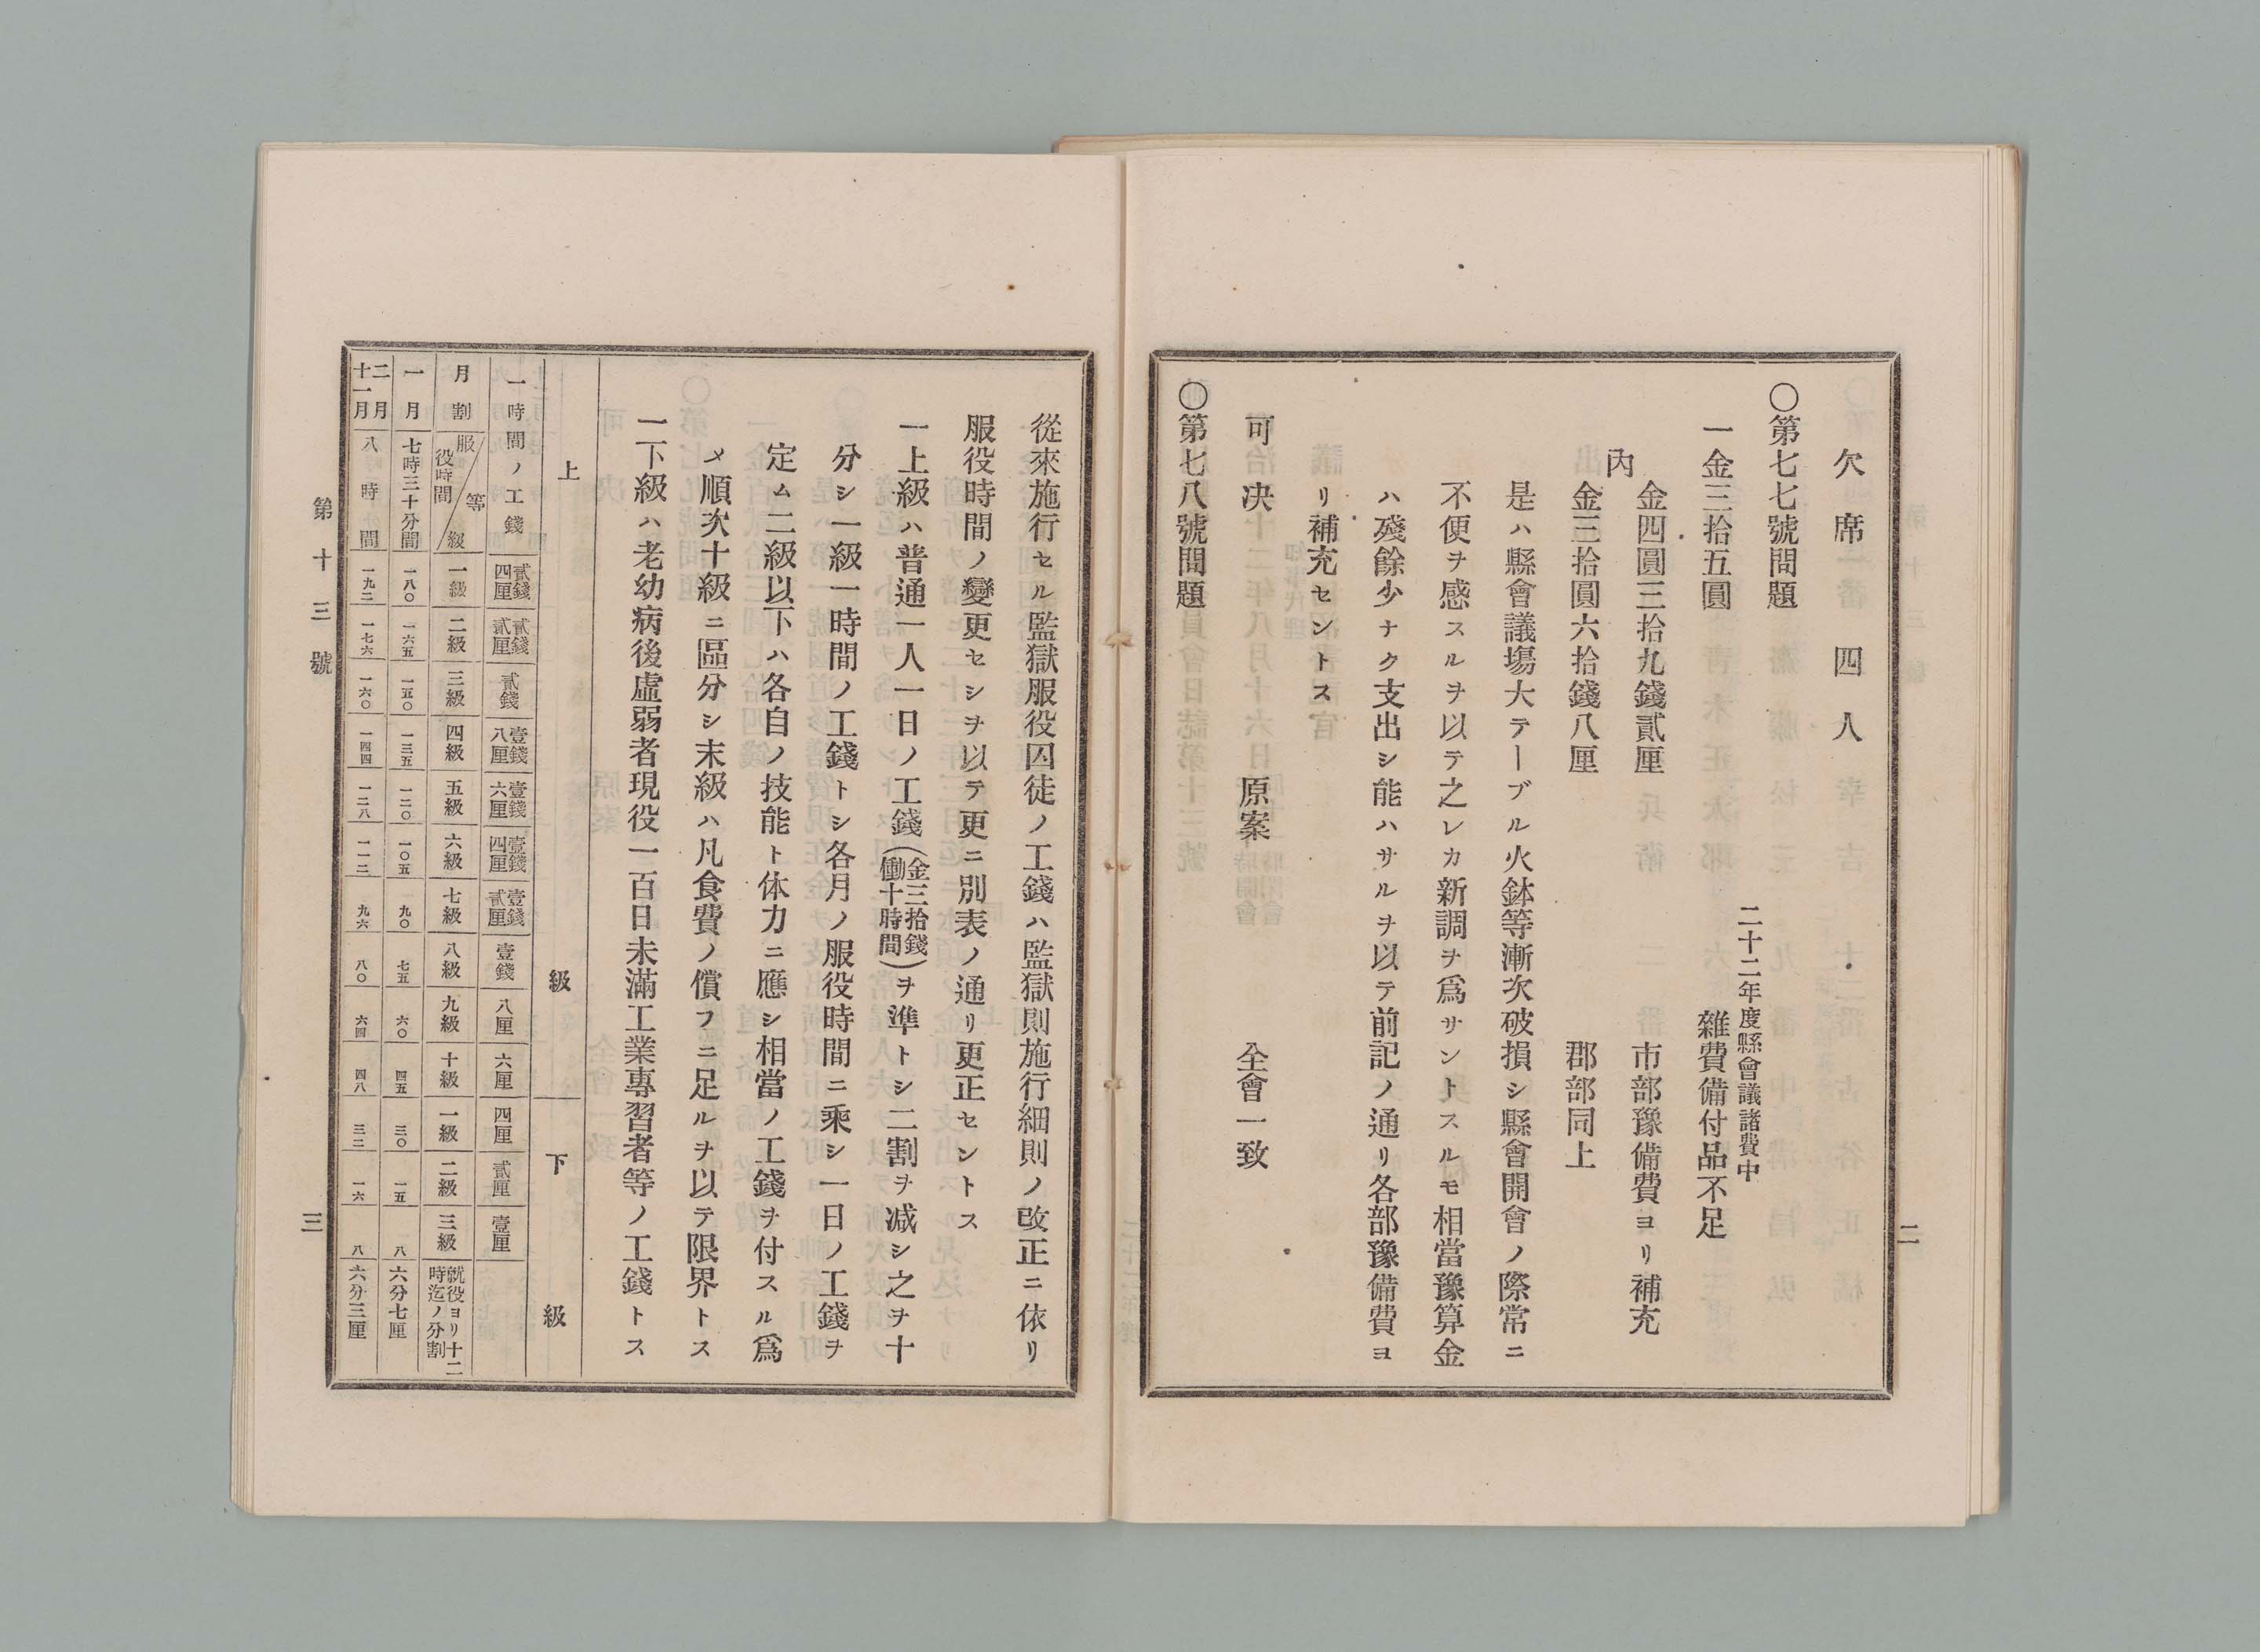 二
欠席四人
〇第七七號問題
一金三拾五圓
二十二年度縣會議諸費中
雜費備付品不足
內
金四圓三拾九錢貳厘 市部豫備費ヨリ補充
金三拾圓六拾錢八厘 郡部同上
是ハ縣會議塲大テーブル火鉢等漸次破損シ縣會開會ノ際常ニ
不便ヲ感スルヲ以テ之レカ新調ヲ爲サントスルモ相當豫算金
ハ殘餘少ナク支出シ能ハサルヲ以テ前記ノ通リ各部豫備費ヨ
リ補充セントス
可決 原案 全會一致
〇第七八號問題
從來施行セル監獄服役囚徒ノ工錢ハ監獄則施行細則ノ改正ニ依リ
服役時間ノ變更セシヲ以テ更ニ別表ノ通リ更正セントス
一上級ハ普通一人一日ノ工錢(金三拾錢働十時間)ヲ準トシ二割ヲ減シ之ヲ十
分シ一級一時間ノ工錢トシ各月ノ服役時間ニ乘シ一日ノ工錢ヲ
定ム二級以下ハ各自ノ技能ト体力ニ應シ相當ノ工錢ヲ付スル爲
メ順次十級ニ區分シ末級ハ凡食費ノ償フニ足ルヲ以テ限界トス
一下級ハ老幼病後虛弱者現役一百日未滿工業專習者等ノ工錢トス
上級 下級
一時間ノ工錢 貳錢四厘 貳錢貳厘 貳錢 壹錢八厘 壹錢六厘 壹錢四厘 壹錢貳厘 壹錢 八厘 六厘 四厘 貳厘 壹厘
月割 服役時間 等級 一級 二級 三級 四級 五級 六級 七級 八級 九級 十級 一級 二級 三級 就役ヨリ十二時迄ノ分割
一月 七時三十分間 一八〇 一六五 一五〇 一三五 一二〇 一〇五 九〇 七五 六〇 四五 三〇 一五 八 六分七厘
二月十一月 八時間 一九二 一七六 一六〇 一四四 一二八 一一二 九六 八〇 六四 四八 三二 一六 八 六分三厘
第十三號
三